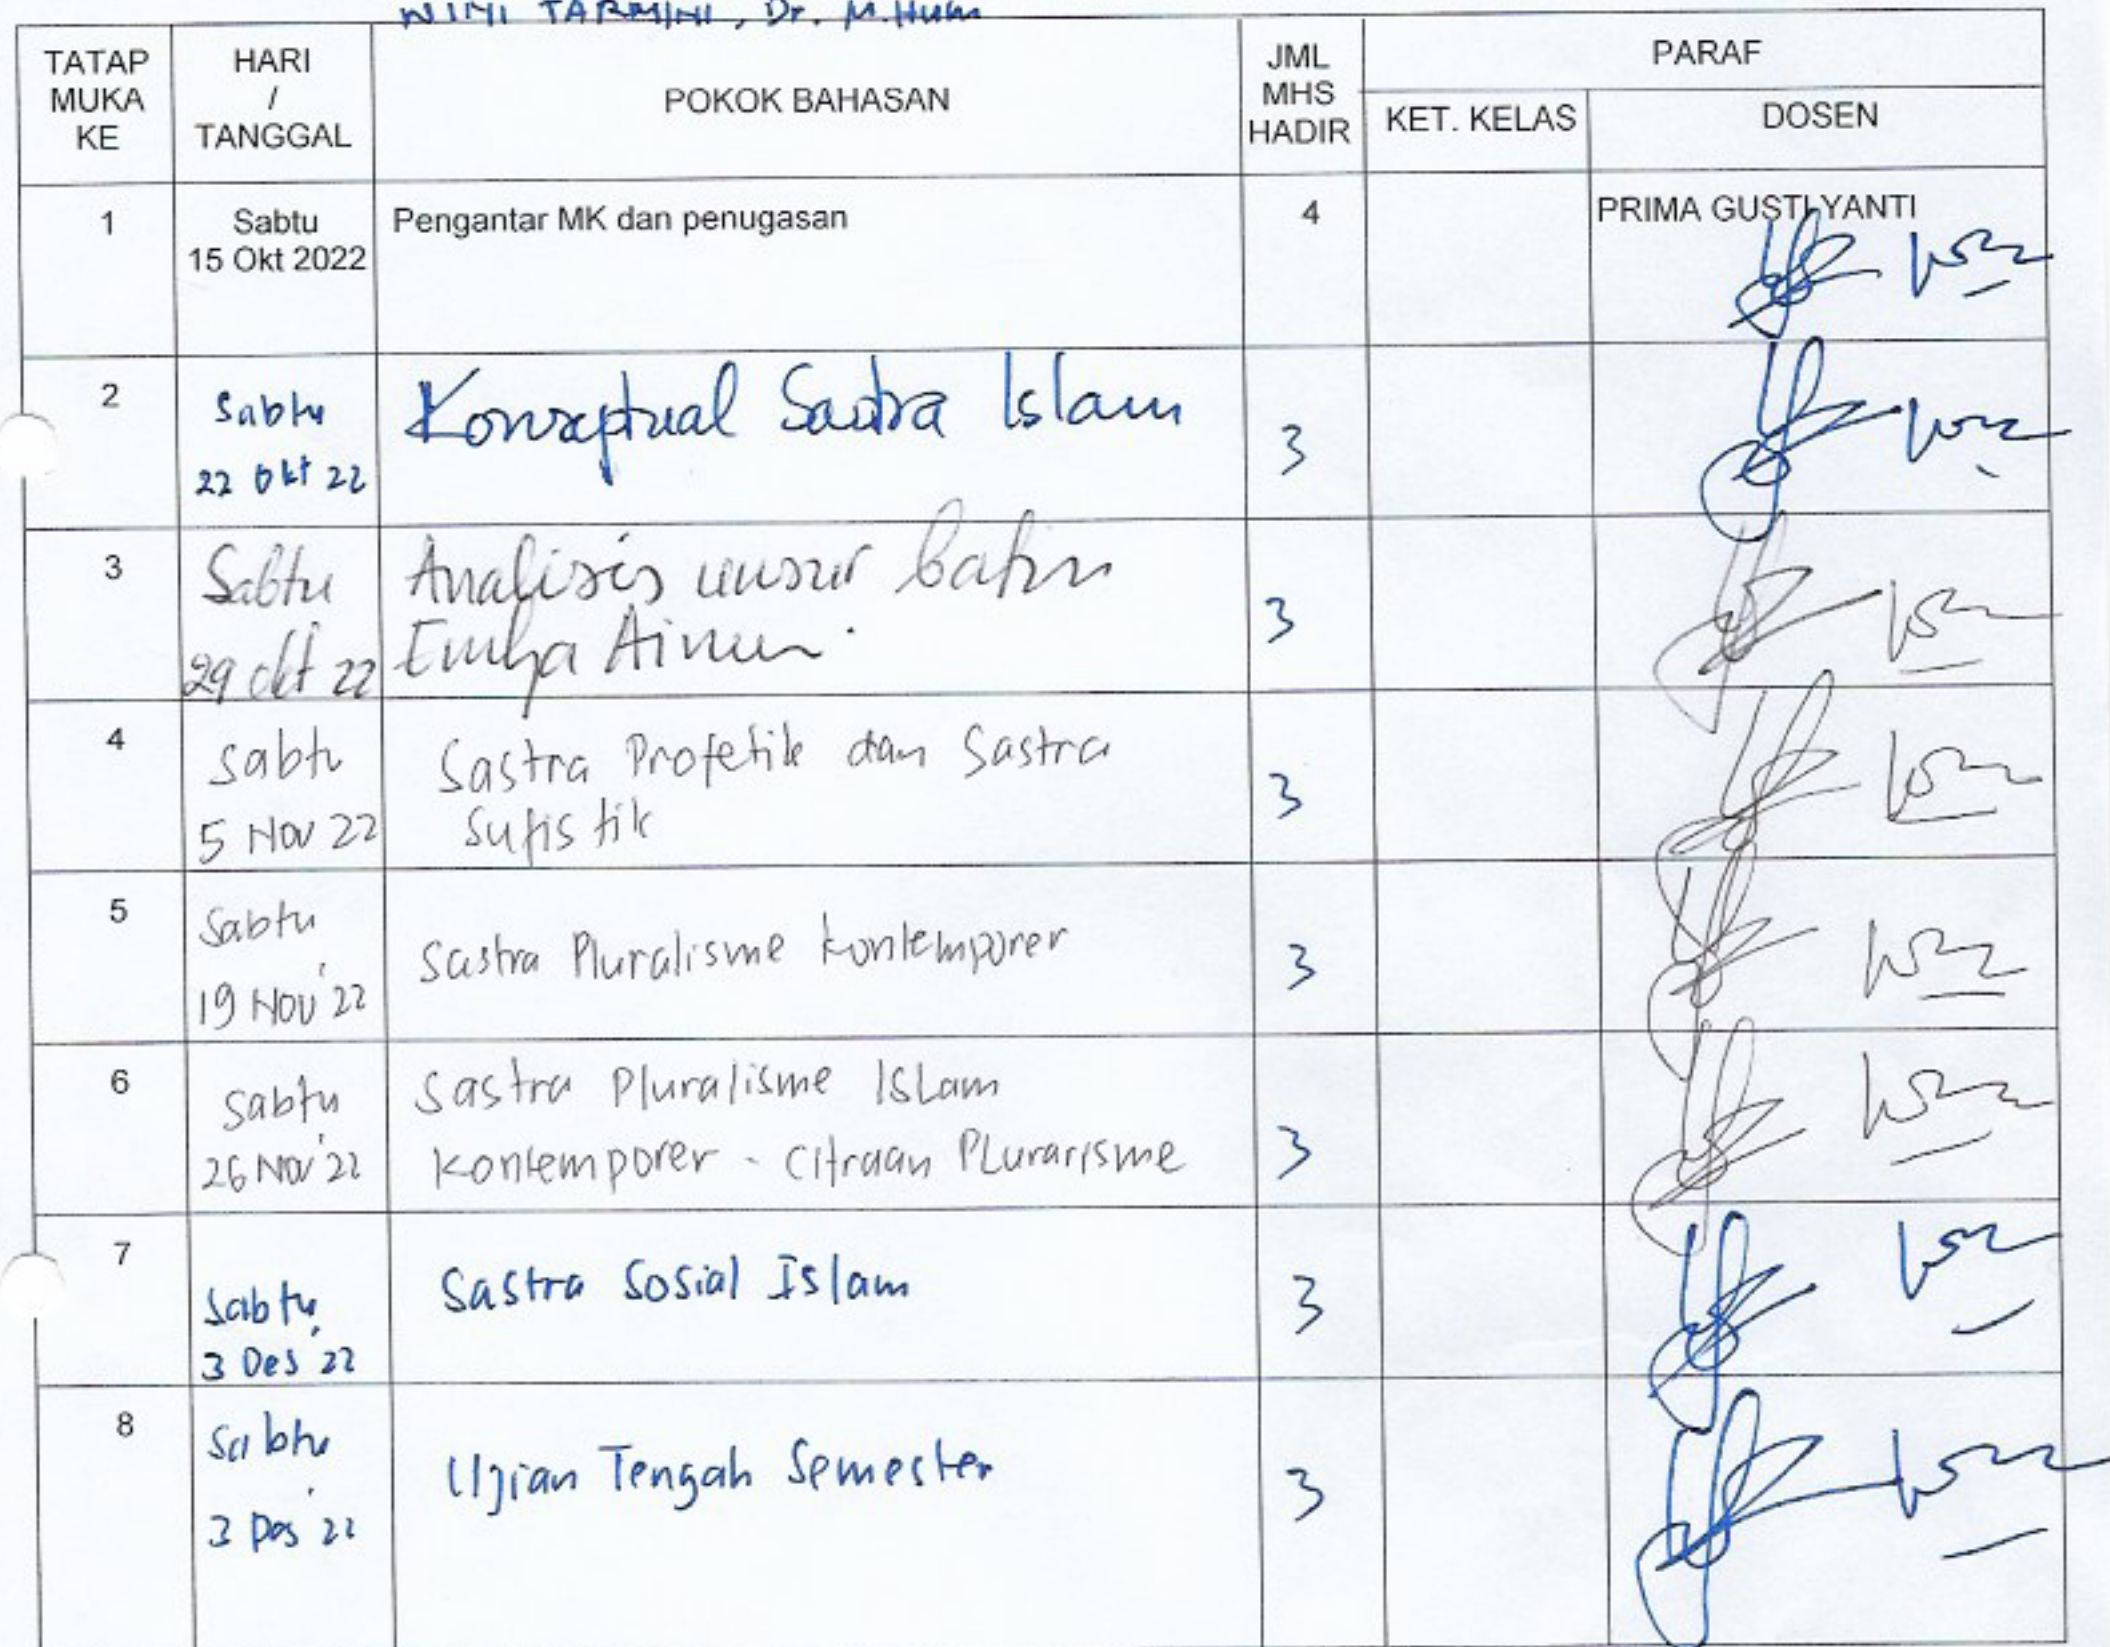 WINI TARMINI, Dr. M.Hum
TATAP MUKA KE
HARI / TANGGAL
POKOK BAHASAN
JML MHS HADIR
PARAF
KET. KELAS
DOSEN
1
Sabtu
15 Okt 2022
Pengantar MK dan penugasan
4
PRIMA GUSTI YANTI
2
Sabtu
22 Okt 22
Konseptual Sastra Islam
3
3
Sabtu
29 Okt 22
Analisis unsur batin
Emha Ainun.
3
4
Sabtu
5 Nov 22
Sastra Profetik dan Sastra
Sufistik
3
5
Sabtu
19 Nov '22
Sastra Pluralisme Kontemporer
3
6
Sabtu
26 Nov '22
Sastra Pluralisme Islam
Kontemporer - Citraan Plurarisme
3
7
Sabtu,
3 Des '22
Sastra Sosial Islam
3
8
Sabtu
3 Des '22
Ujian Tengah Semester
3